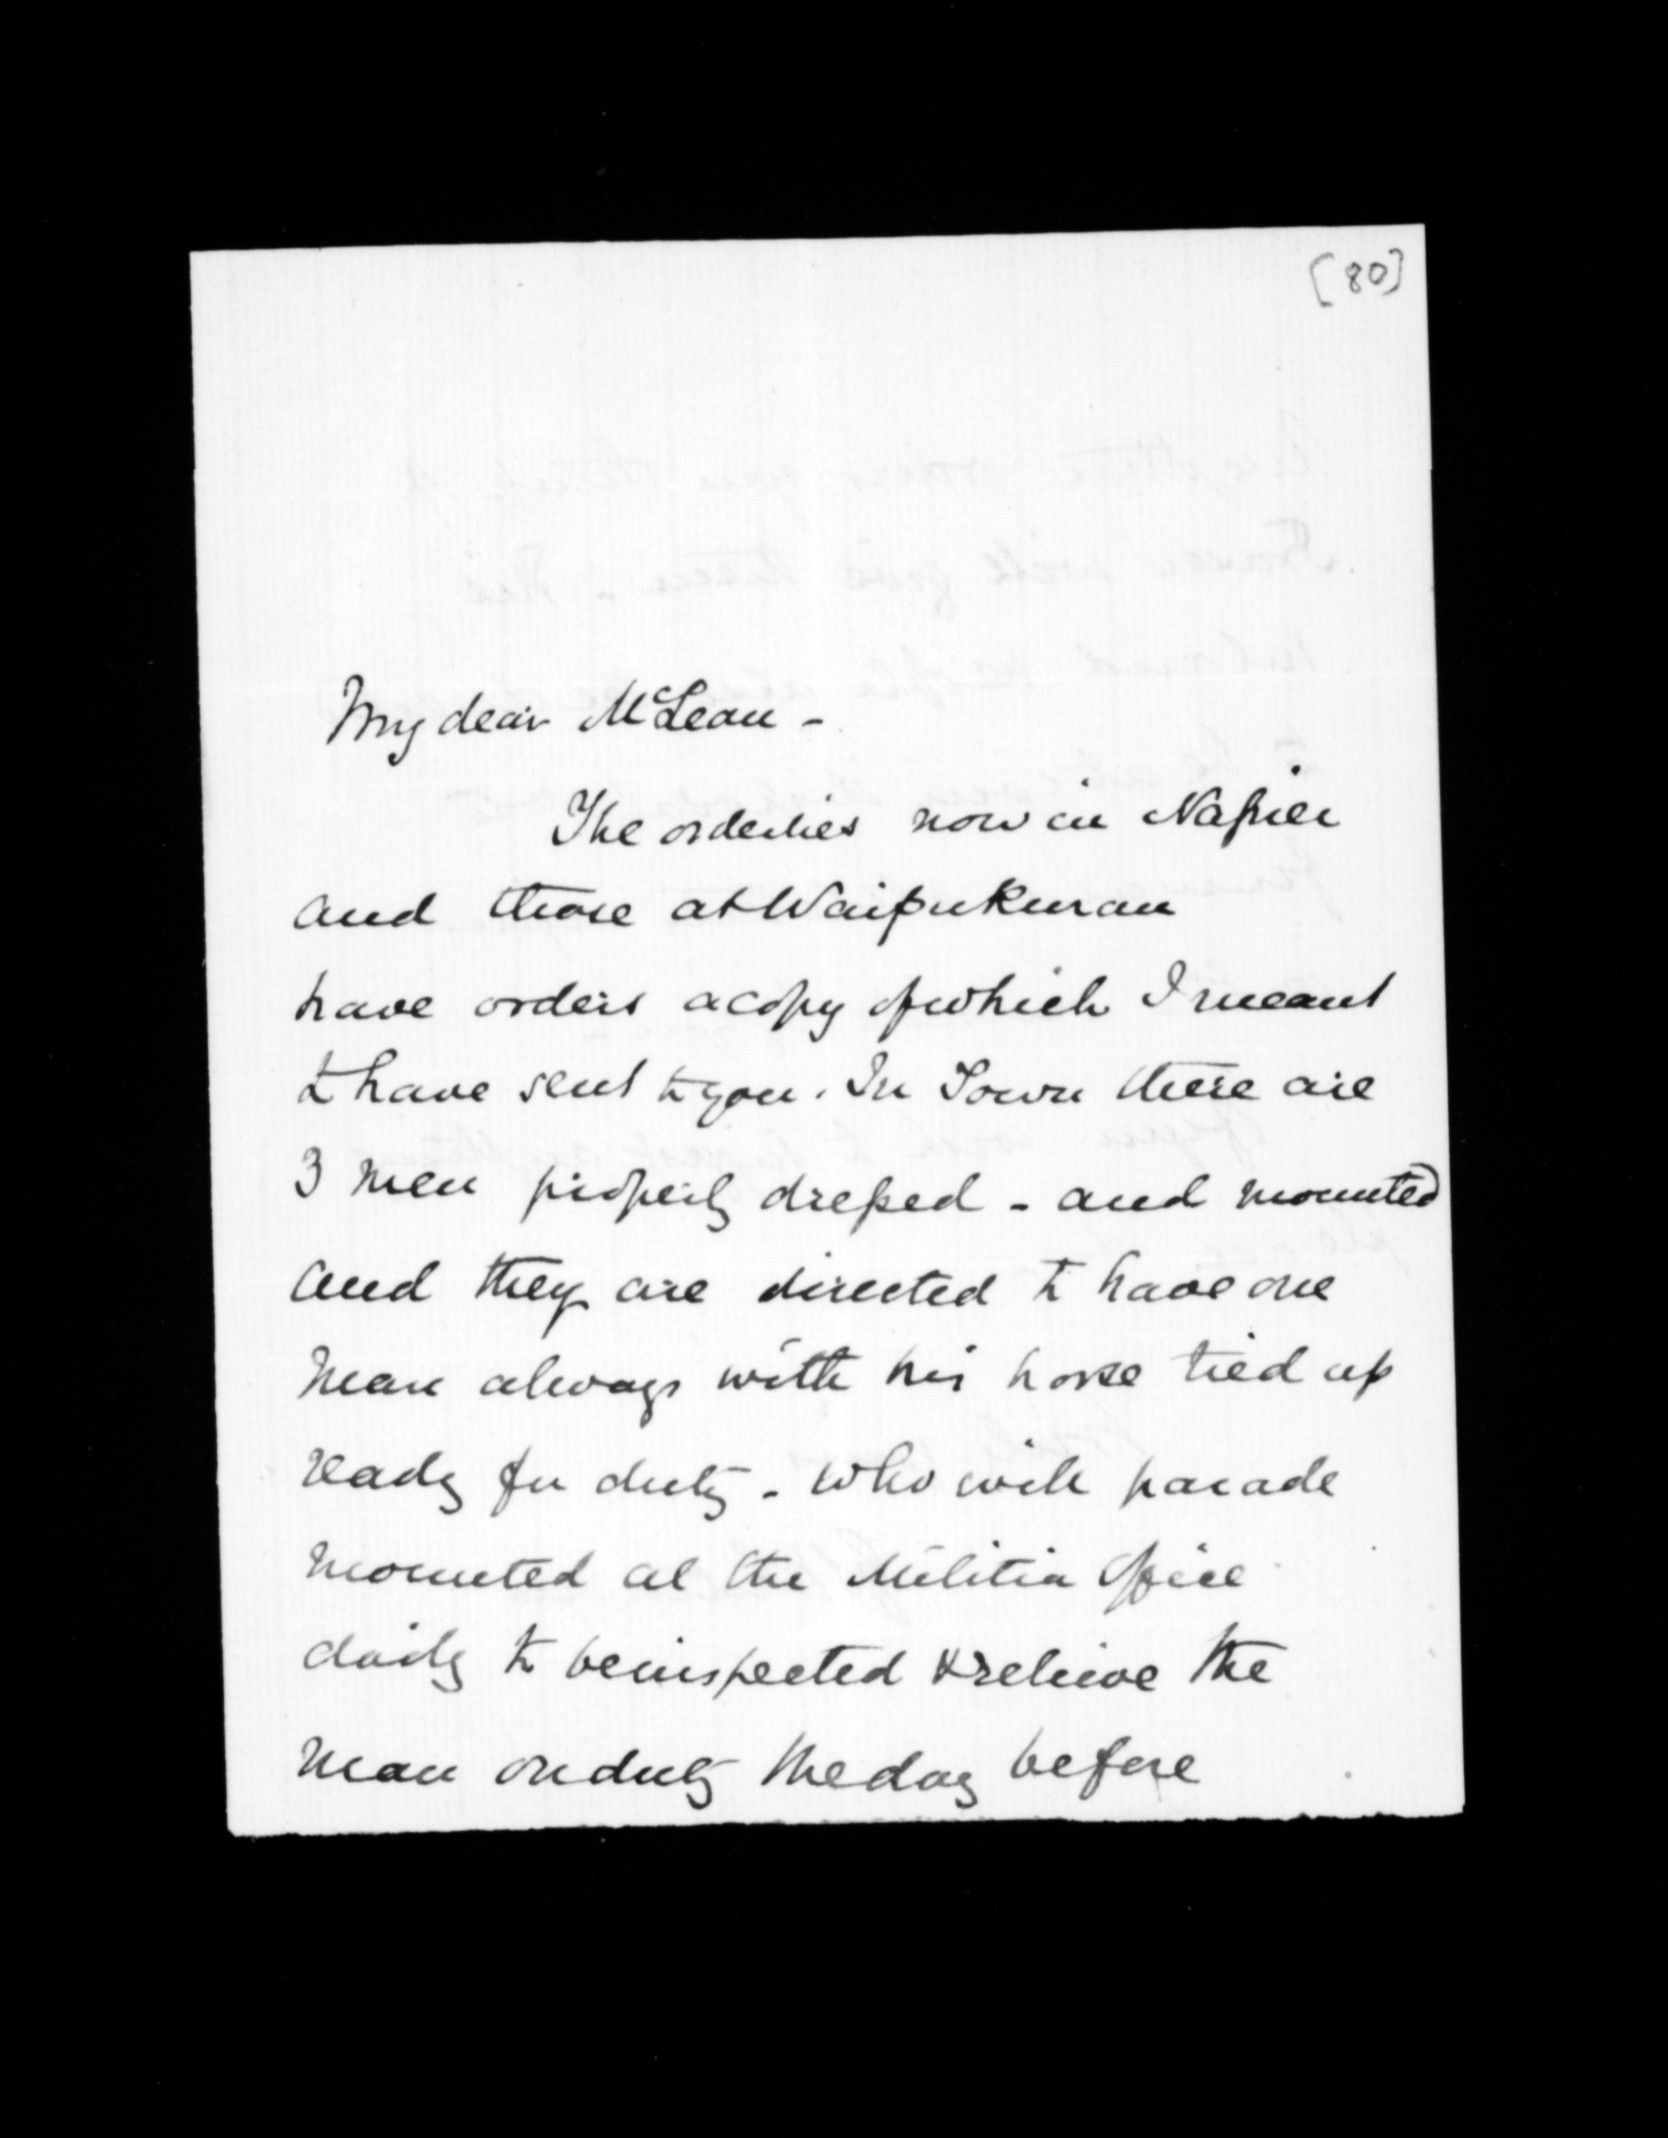 [80]
My dear McLean -
The orderlies now in Napier
and those at Waipukurau
have orders a copy of which I meant
to have sent to you. In Town there are
3 men properly dressed - and mounted
and they are directed to have one
man always with his horse tied up
ready for duty - who will parade
mounted at the Militia Office
daily to be inspected & relieve the
man on duty the day before